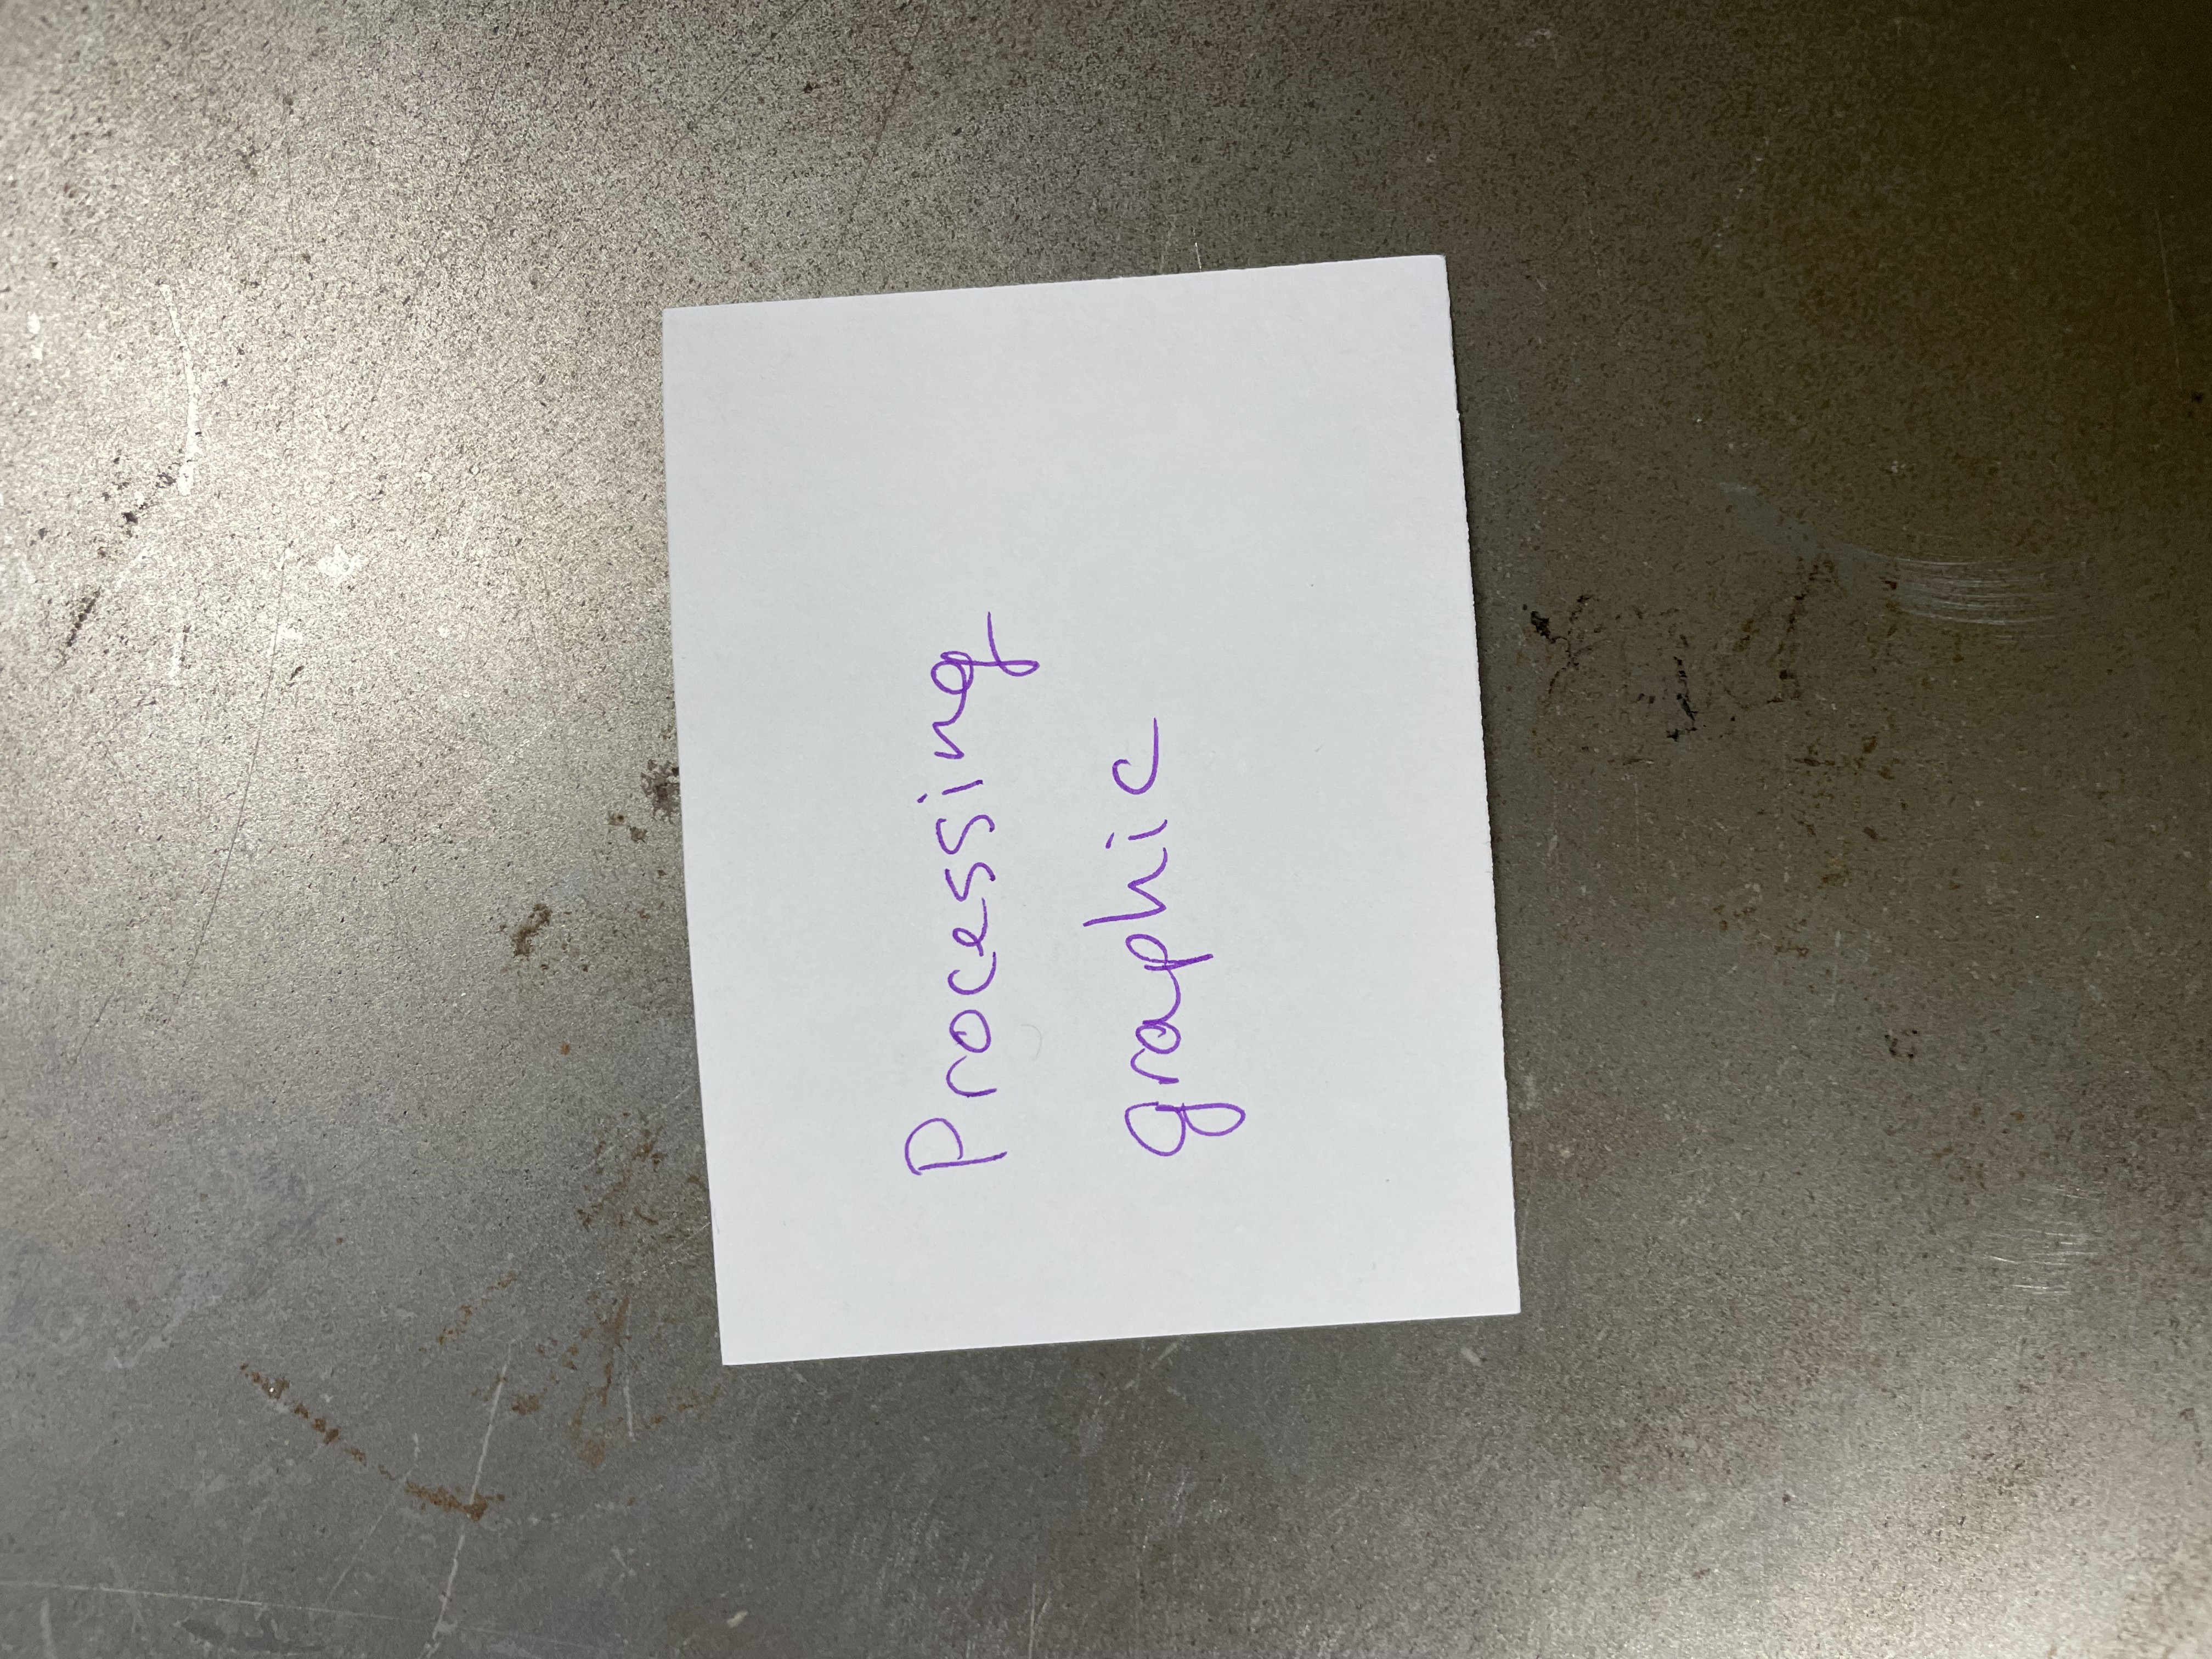 Processing
graphic